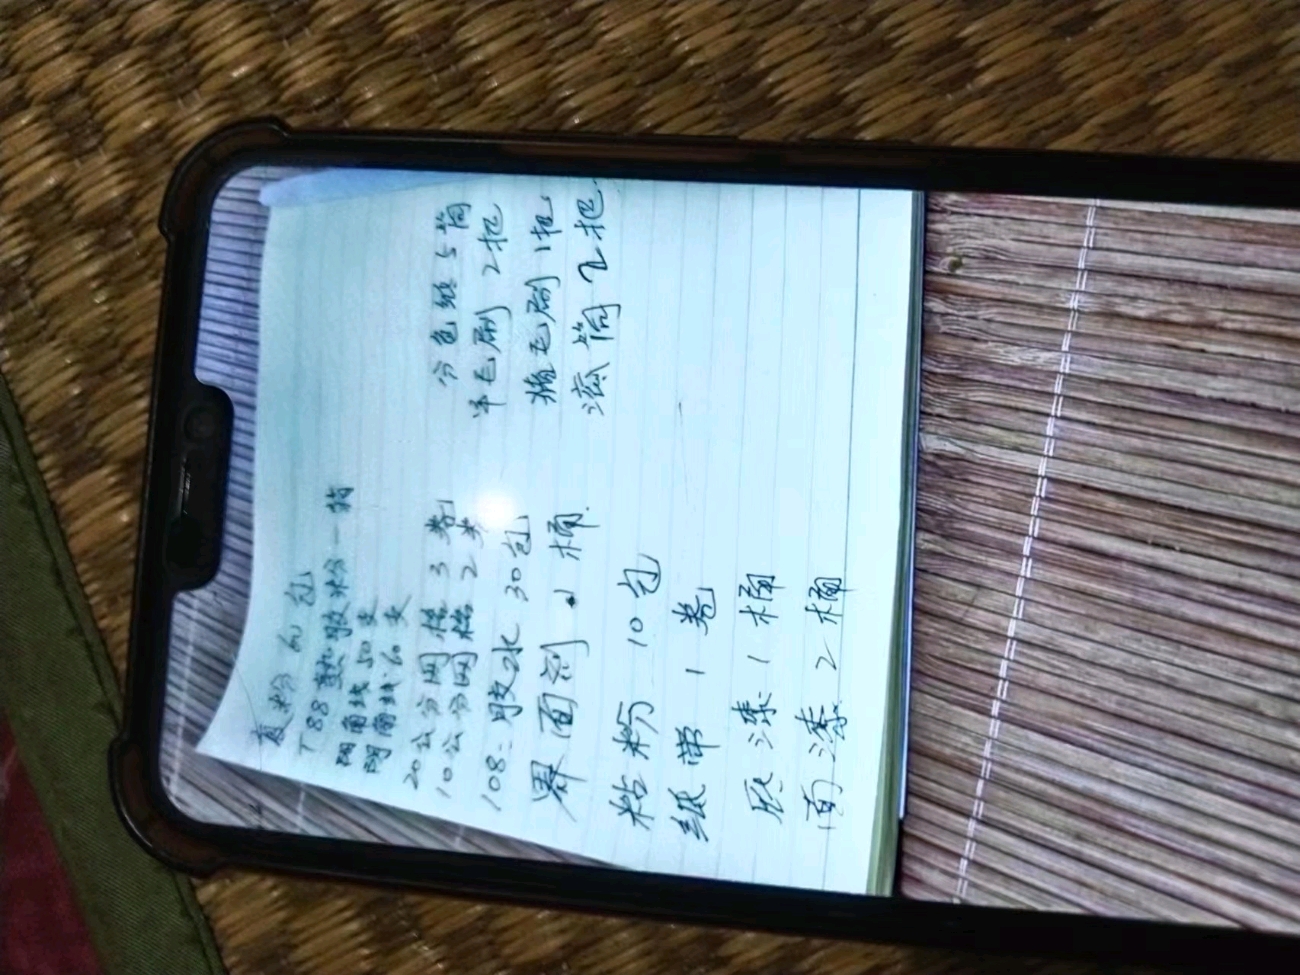 夏粉 60包
T88 塾胶粉一箱
阴角线 50支
阳角线 60支
20公分网格 3卷
10公分网格 2卷
108-胶水 30包
界面剂 1桶.
粘粉 10包
纸带 1卷
底漆 1桶
面漆 2桶
分色纸 5筒
羊毛刷 2把
猪毛刷 1把
滚筒 2把